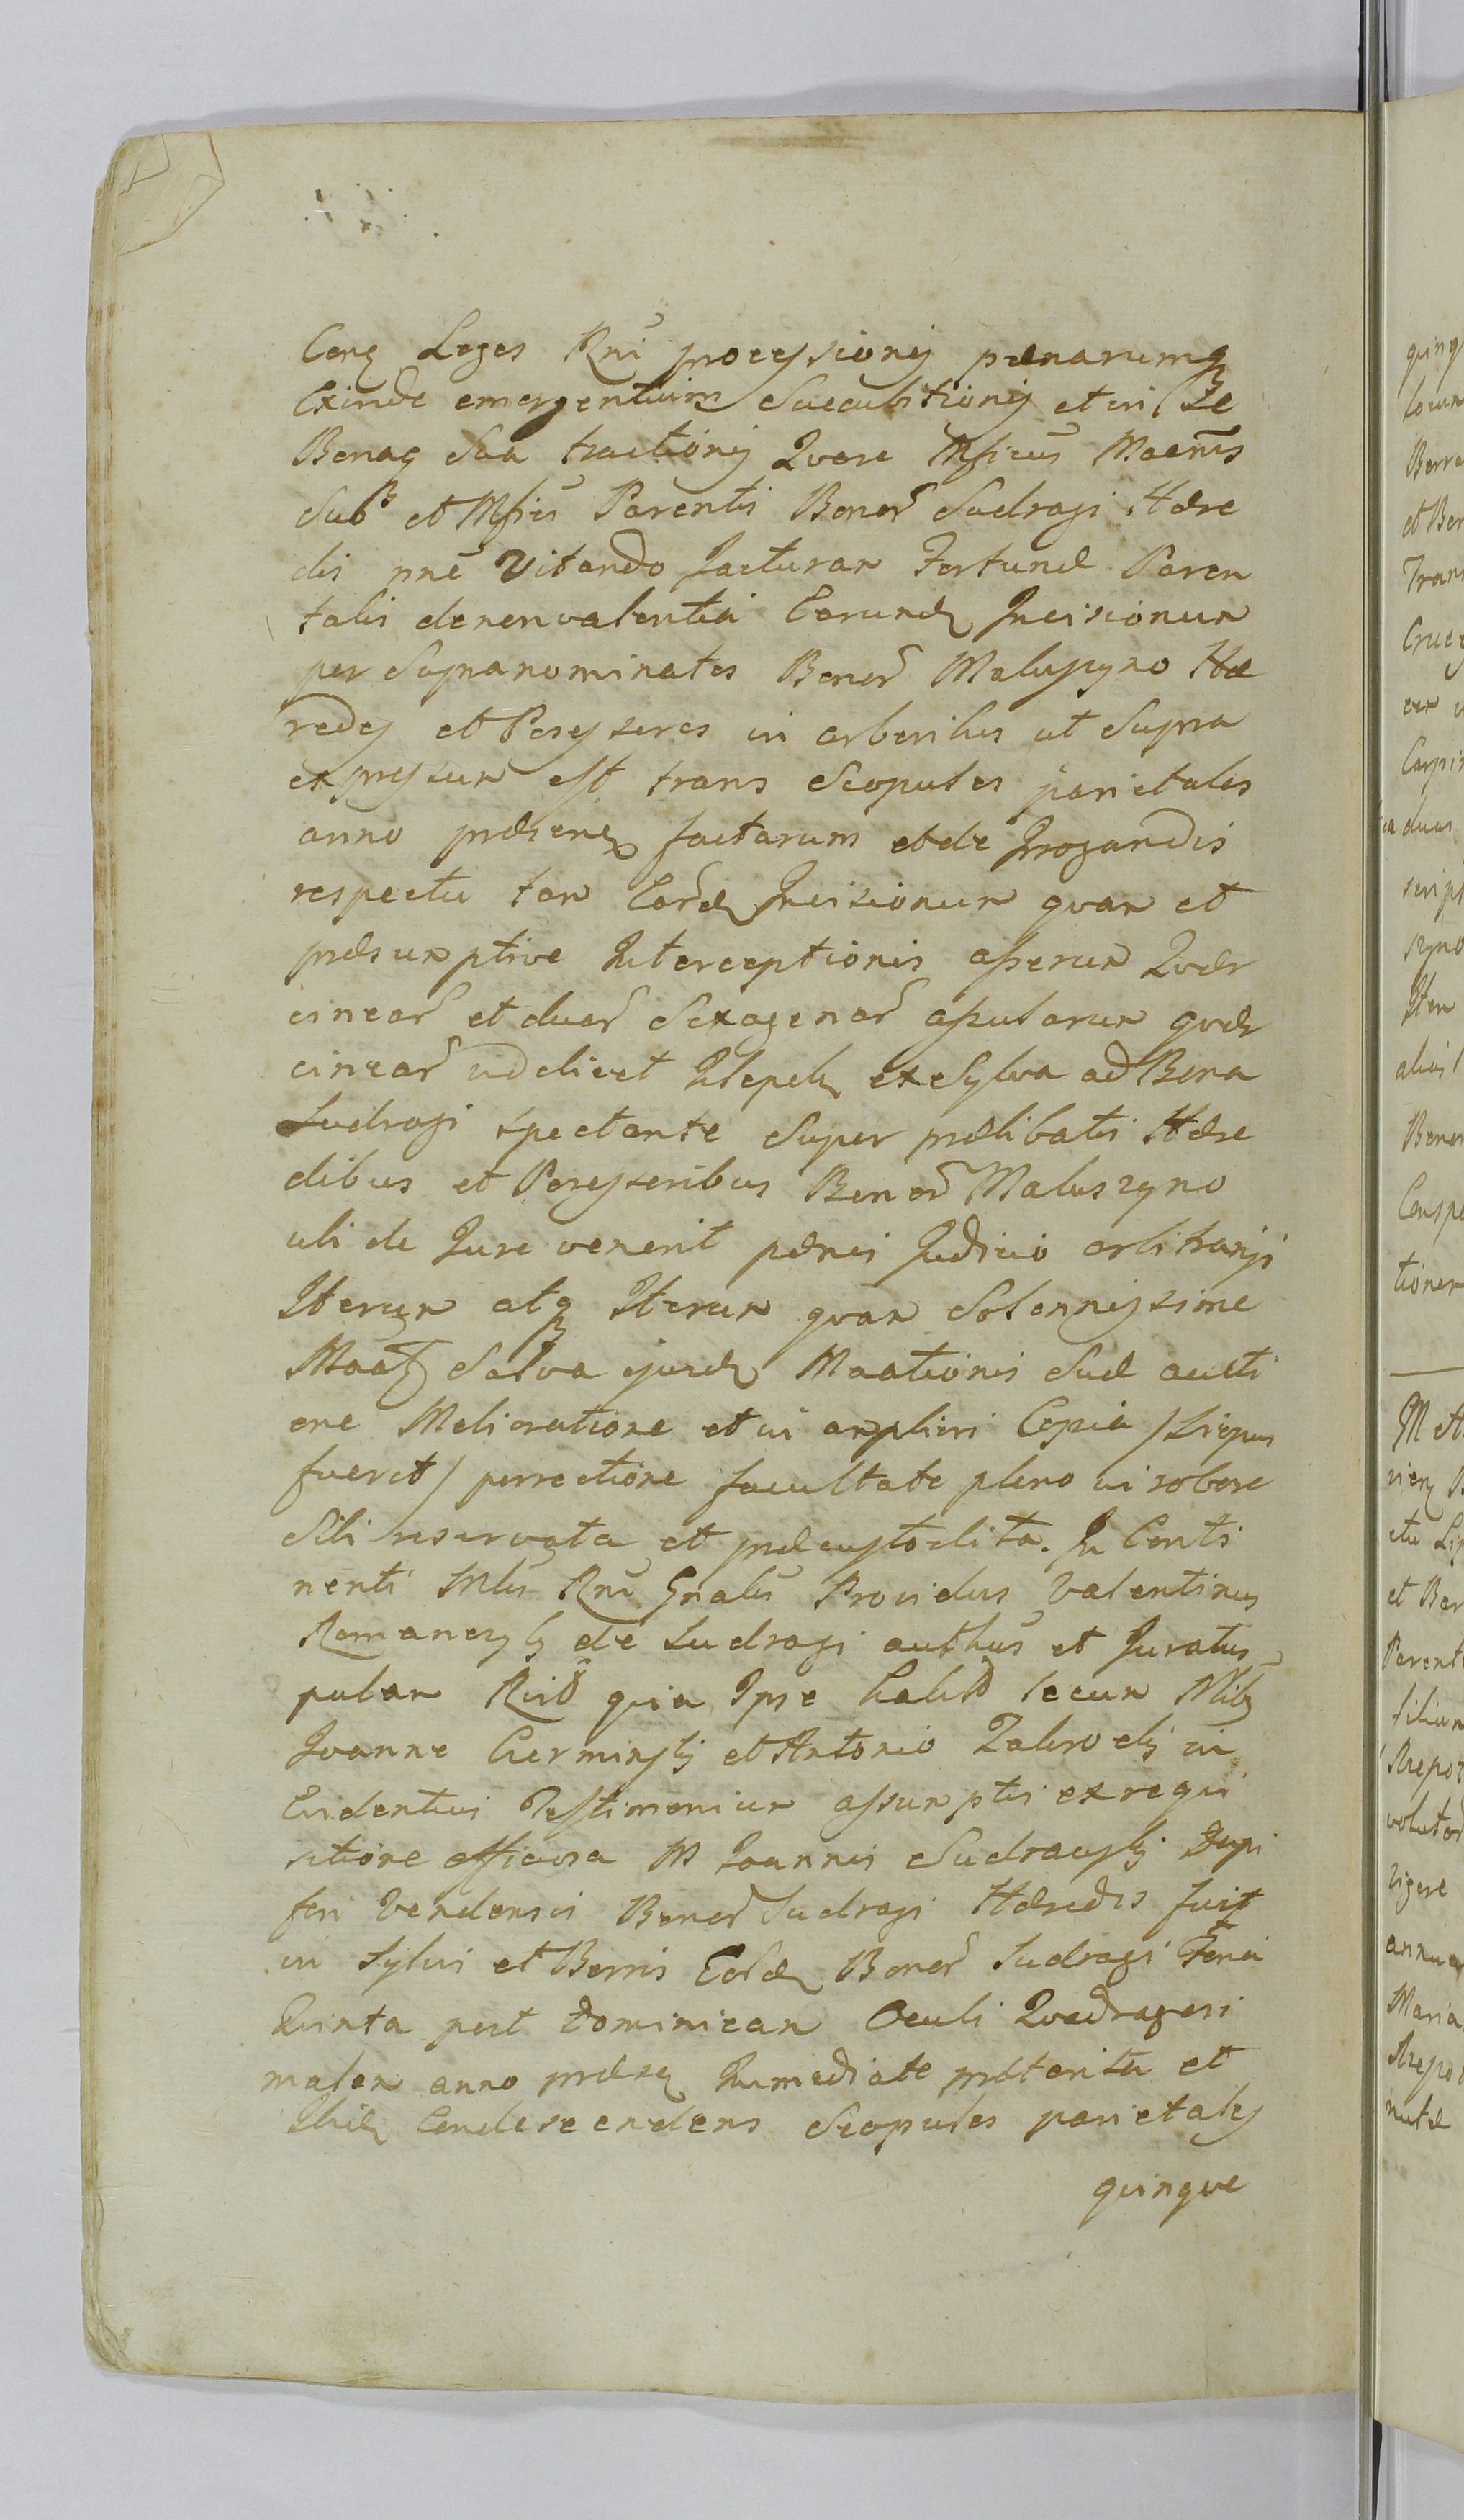 Conq Leges Rni processionis pænarumq
Exinde emergentium Succubitionis et in Se
Bonaq Sua tractionis Quare Mficus Maeñs
Sub et Mfici Parentis Bonor Sudragi Hære
dis nne Vitando Jacturam Fortunæ Paren
talis de non valentia Earundꝫ Incisionum
per Supranominatos Bonor Maluszyno Hæ
redes et Possessores in arboribus ut Supra
expressum est trans Scopulos parietales
anno præsenꝫ factarum et de Irrogandis
respectu tam Eardꝫ Incisionum quam et
præsumptive Interceptionis asserum Quer
cinear et duar Sexagenar assularum quer
cinear videlicet Klepek ex Sylva ad Bona
Sudragi spectante Super prælibatis Hære
dibus et Possessoribus Bonor Maluszyno
ubi de Jure venerit pænis Judicio arbitrarijs
Iterum atqꝫ Iterum quam Solennissime
Maatꝫ Salva ejusdꝫ Maationis Suæ aucti
one Melioratione et in ampliori Copia /si opus
fuerit/ porrectione facultate pleno in robore
Sibi reservata et præcustodita. In Conti
nenti Mlis Rni Gnalis Providus Valentinus
Romanczyk de Sudragi authus et Juratus
palam Rvit quia Ipse habitis secum Mlibꝫ
Joanne Czerminskj et Antonio Zabwoskj in
Evidentius Testimonium assumptis ex requi
sitione officiosa M Joannis Sudrawskj Dapi
feri Vendensis Bonor Sudragi Hæredis fuit
in Sylvis et Borris Eordꝫ Bonor Sudragi Feria
Quinta post Dominicam Oculi Quadragesi
malem anno præsꝫ Immediate præterita et
Ibidꝫ Condescendens Scopulos parietales
quinque